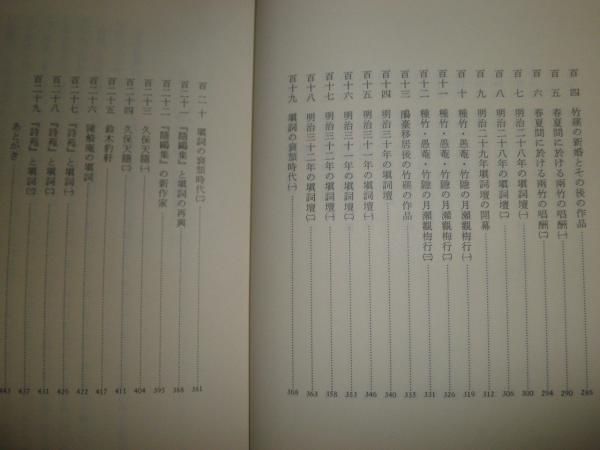 百四 竹磎の新婚とその後の作品 286
百五 春夏間に於ける兩竹の唱酬㈠ 290
百六 春夏間に於ける兩竹の唱酬㈡ 294
百七 明治二十八年の塡詞壇㈠ 300
百八 明治二十八年の塡詞壇㈡ 306
百九 明治二十九年塡詞壇の開幕 312
百十 種竹・愚庵・竹隱の月瀨觀梅行㈠ 319
百十一 種竹・愚庵・竹隱の月瀨觀梅行㈡ 326
百十二 種竹・愚庵・竹隱の月瀨觀梅行㈢ 331
百十三 移居後の竹磎の作品 333
百十四 明治三十年の塡詞壇 340
百十五 明治三十一年の塡詞壇㈠ 346
百十六 明治三十一年の塡詞壇㈡ 353
百十七 明治三十二年の塡詞壇㈠ 358
百十八 明治三十二年の塡詞壇㈡ 363
百十九 塡詞の衰頽時代㈠ 368
百二十 塡詞の衰頽時代㈡ 381
百二十一 『隨鷗集』と塡詞の再興 388
百二十二 『隨鷗集』の新作家 395
百二十三 久保天隨㈠ 404
百二十四 久保天隨㈡ 411
百二十五 鈴木豹軒 417
百二十六 の塡詞 422
百二十七 『詩苑』と塡詞㈠ 426
百二十八 『詩苑』と塡詞㈡ 431
百二十九 『詩苑』と塡詞㈢ 437
あとがき 443